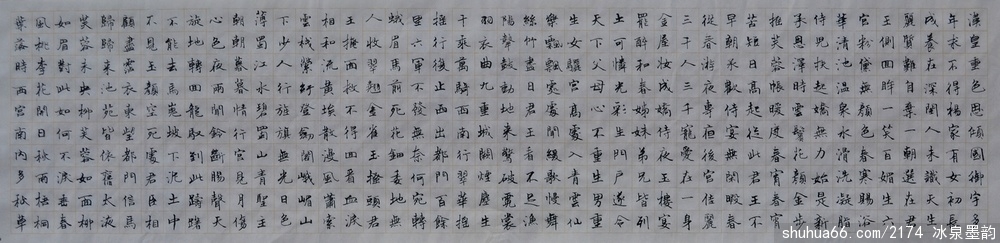 漢皇重色思傾國御宇多
年求不得楊家有女初長
成養在深閨人未識天生
麗質難自棄一朝選在君
王側回眸一笑百媚生六
宮粉黛無顏色春寒賜浴
華清池溫泉水滑洗凝脂
侍兒扶起嬌無力始是新
承恩澤時雲鬢花顏金步
搖芙蓉帳暖度春宵春宵
苦短日高起從此君王不
早朝承歡侍宴無閑暇春
從春遊夜專夜後宮佳麗
三千人三千寵愛在一身
金屋妝成嬌侍夜玉樓宴
罷醉和春姊妹弟兄皆列
土可憐光彩生門戶遂令
天下父母心不重生男重
生女驪宮高處入青雲仙
樂風飄處處聞緩歌慢舞凝
絲竹盡日君王看不足漁
陽鼙鼓動地來驚破霓裳
羽衣曲九重城闕煙塵生
千乘萬騎西南行翠華搖
搖行復止西出都門百餘
里六軍不發無奈何宛轉
蛾眉馬前死花鈿委地無
人收翠翹金雀玉搔頭君
王掩面救不得回看血淚
相和流黃埃散漫風蕭索
雲棧縈紆登劍閣峨嵋山
下少人行旌旗無光日色
薄蜀江水碧蜀山青聖主
朝朝暮暮情行宮見月傷
心色夜雨聞鈴腸斷聲天
旋地轉迴龍馭到此躊躇
不能去馬嵬坡下泥土中
不見玉顏空死處君臣相
顧盡霑衣東望都門信馬
歸歸來池苑皆依舊太液
芙蓉未央柳芙蓉如面柳
如眉對此如何不淚垂春
風桃李花日秋雨梧桐
葉落時西宮南內多秋草
shuhua66.com/2174 冰泉墨韵